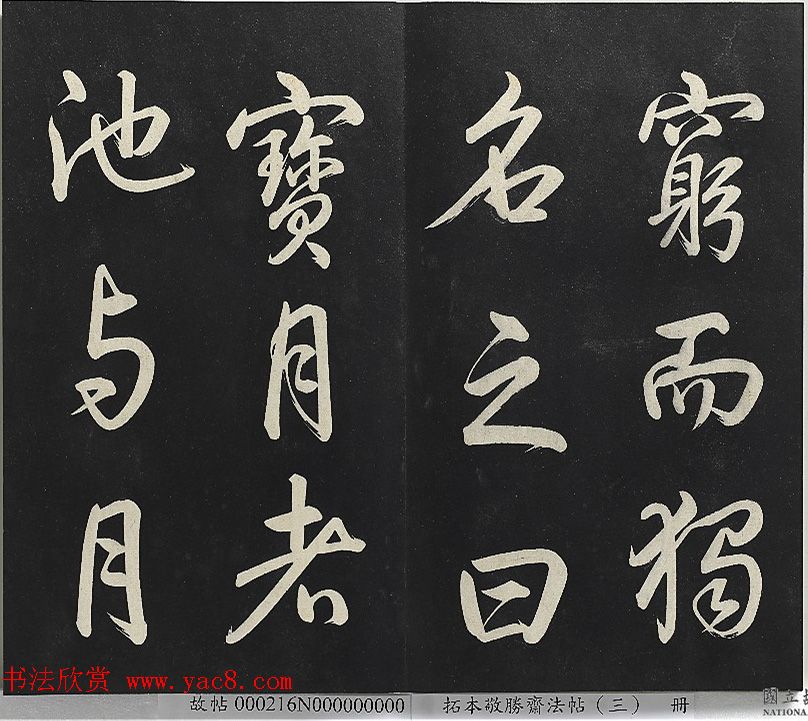 窮而獨
名之曰
寶月者
池与月
书法欣赏 www.yac8.com
故帖 000216N000000000 拓本敬勝齋法帖（三） 冊
國立
NATIONA